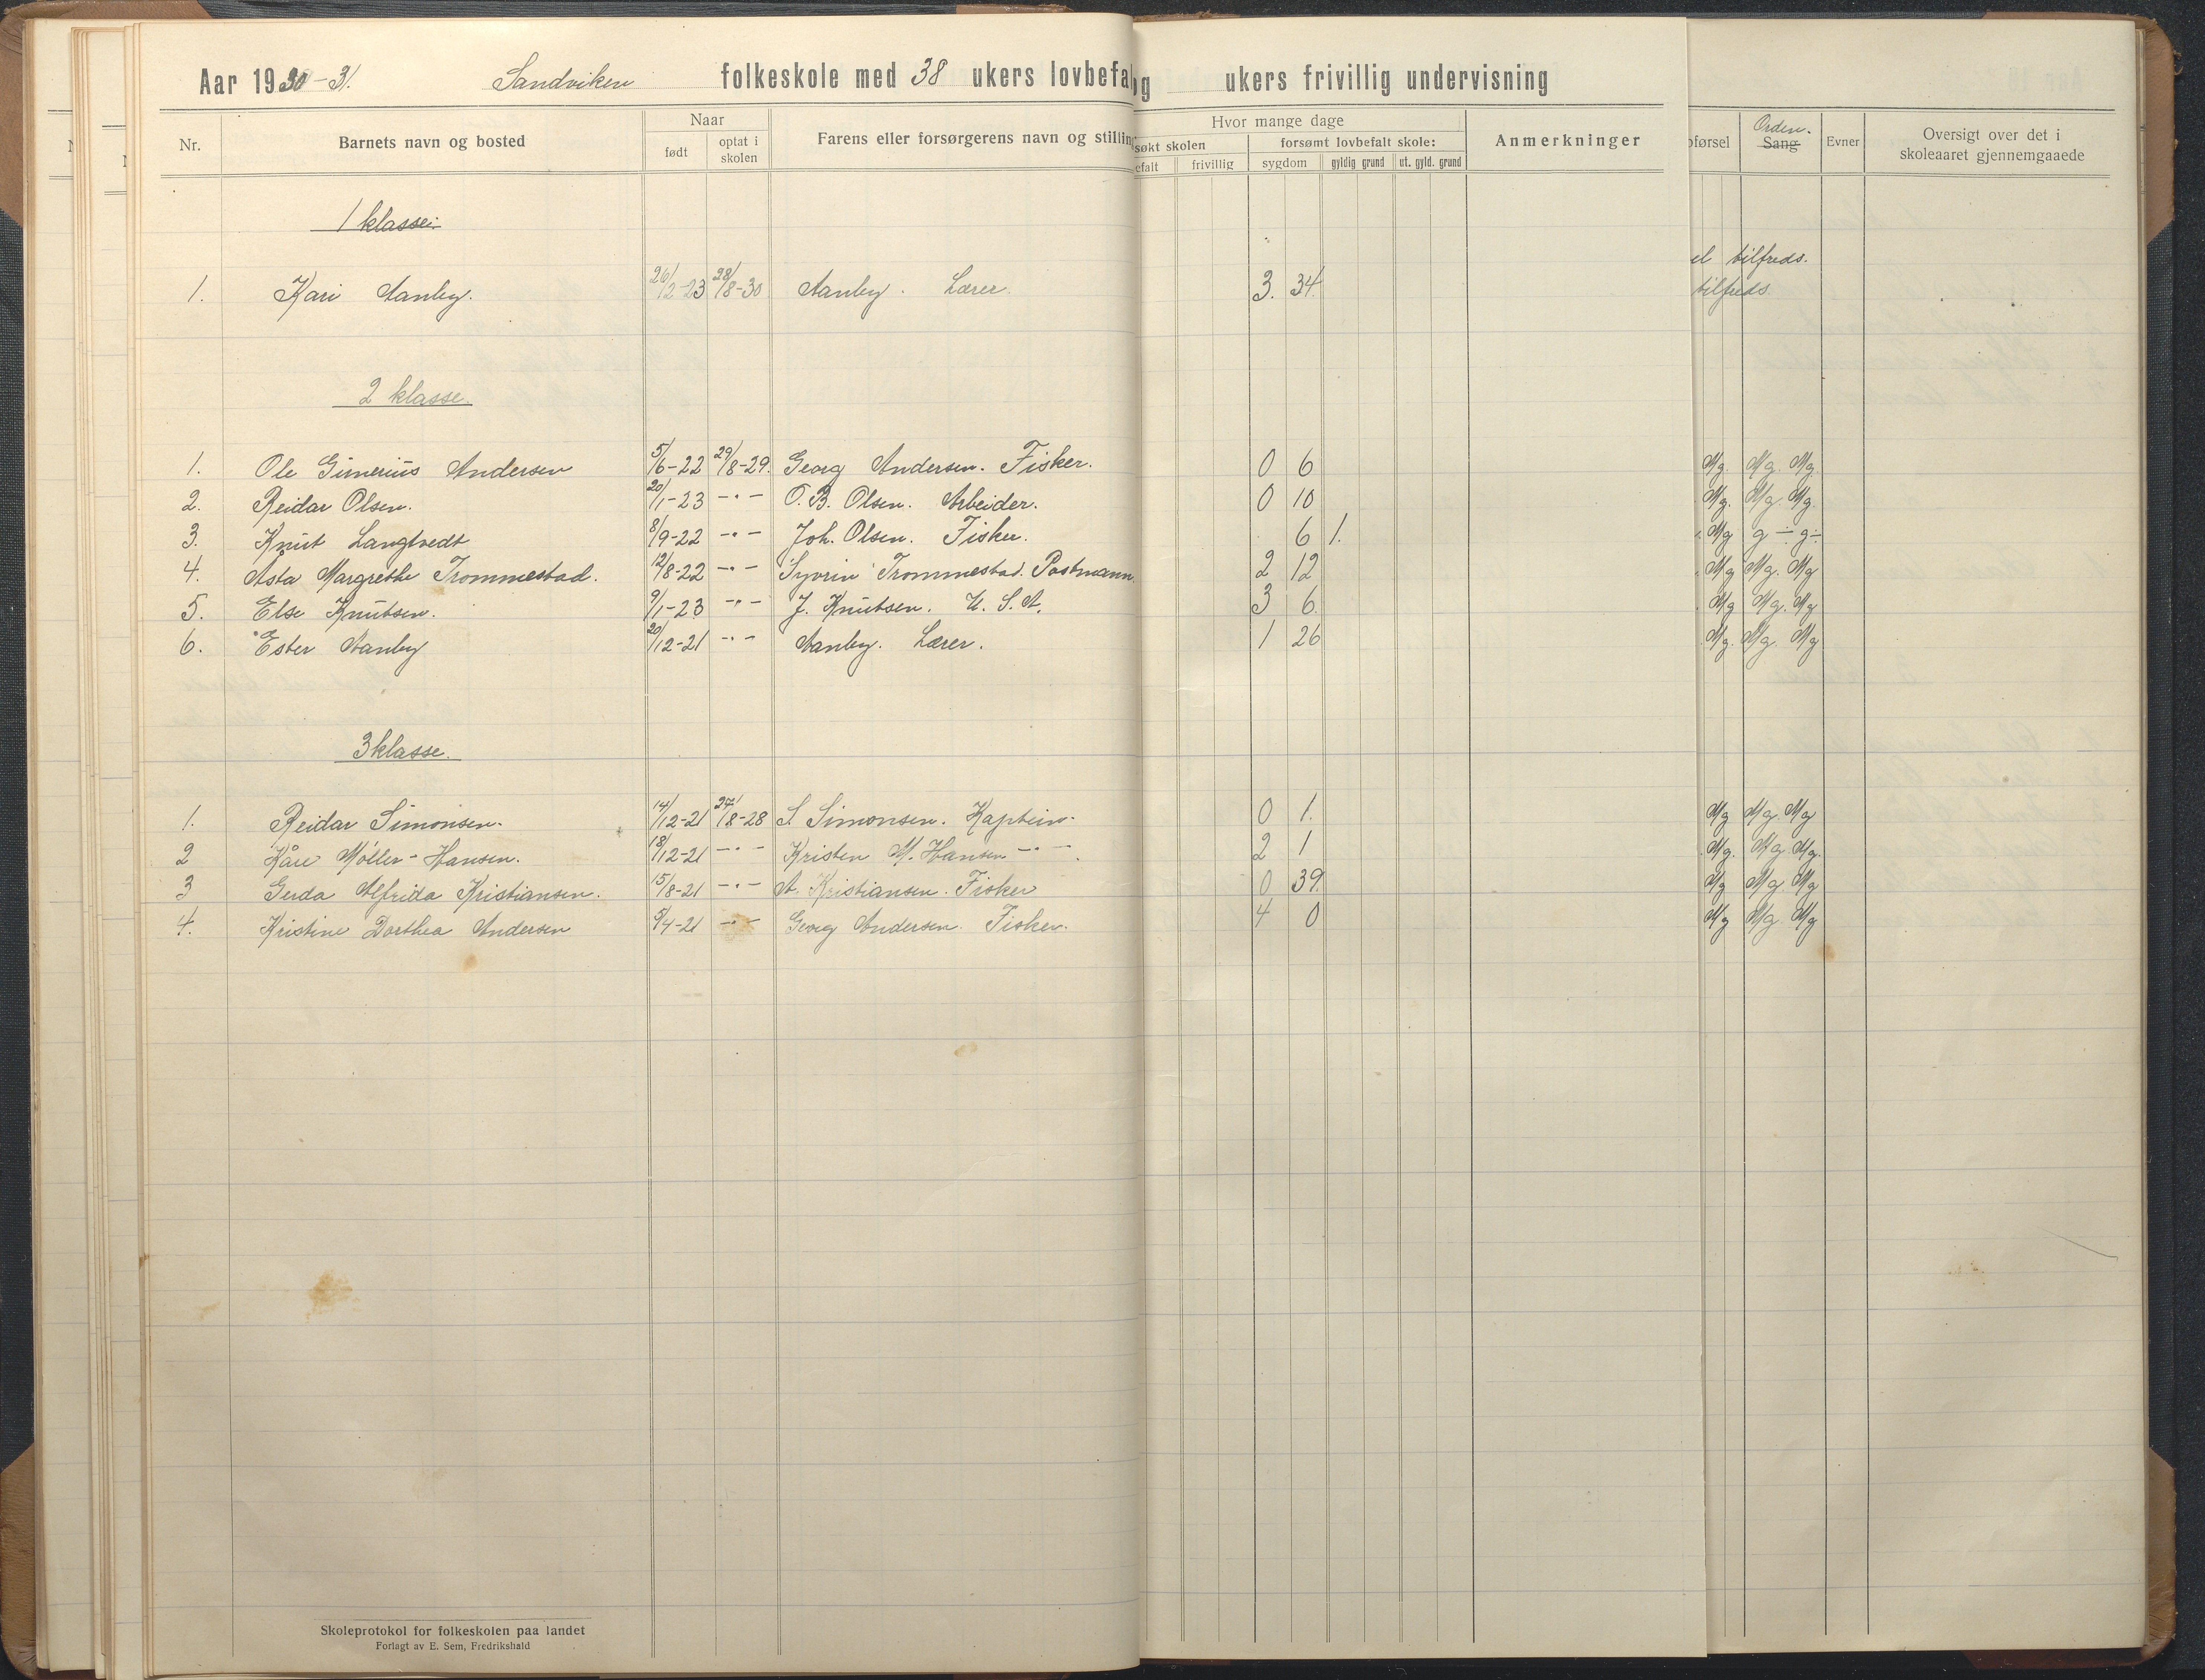 Aar 1930-31. Sandviken folkeskole med 38 ukers lovbefal og ukers frivillig undervisning
Nr. Barnets navn og bosted Naar Farens eller forsørgerens navn og stillin Hvor mange dage Anmerkninger oførsel Orden. Sang Evner Oversigt over det i skoleaaret gjennemgaaede
født optat i skolen søkt skolen forsømt lovbefalt skole:
efalt frivillig sygdom gyldig grund ut. gyld. grund
1 klasse:
el tilfreds.
1. Kari Aanby. 26/2-23 28/8-30 Aanby. Lærer. 3. 34. tilfreds.
2 klasse.
1. Ole Gimerius Andersen 5/6-22 29/8-29. Georg Andersen. Fisker. 0 6 Mg. Mg. Mg.
2. Reidar Olsen. 20/1-23 -"- O. B. Olsen. Arbeider. 0 10 Mg. Mg. Mg.
3. Knut Langtvedt 8/9-22 -"- Joh. Olsen. Fisker. 6 1. Mg g÷ g÷
4. Asta Margrethe Trommestad. 12/8-22 -"- Syvrin Trommestad. Postmann. 2 12 Mg Mg. Mg
5. Else Knutsen. 9/1-23 -"- J. Knutsen. U. S. A. 3 6 Mg Mg. Mg
6. Ester Aanby 20/12-21 -"- Aanby. Lærer. 1 26 Mg. Mg. Mg
3 klasse.
1. Reidar Simonsen. 14/12-21 27/8-28 S. Simonsen. Kaptein. 0 1. Mg Mg. Mg
2 Kåre Møller-Hansen. 18/12-21 -"- Kristen M. Hansen -"- 2 1 Mg. Mg. Mg.
3 Gerda Alfrida Kristiansen. 15/8-21 -"- A. Kristiansen. Fisker 0 39. Mg Mg. Mg
4. Kristine Dorthea Andersen 5/4-21 -"- Georg Andersen. Fisker. 4 0 Mg Mg. Mg
Skoleprotokol for folkeskolen paa landet
Forlagt av E. Sem, Fredrikshald